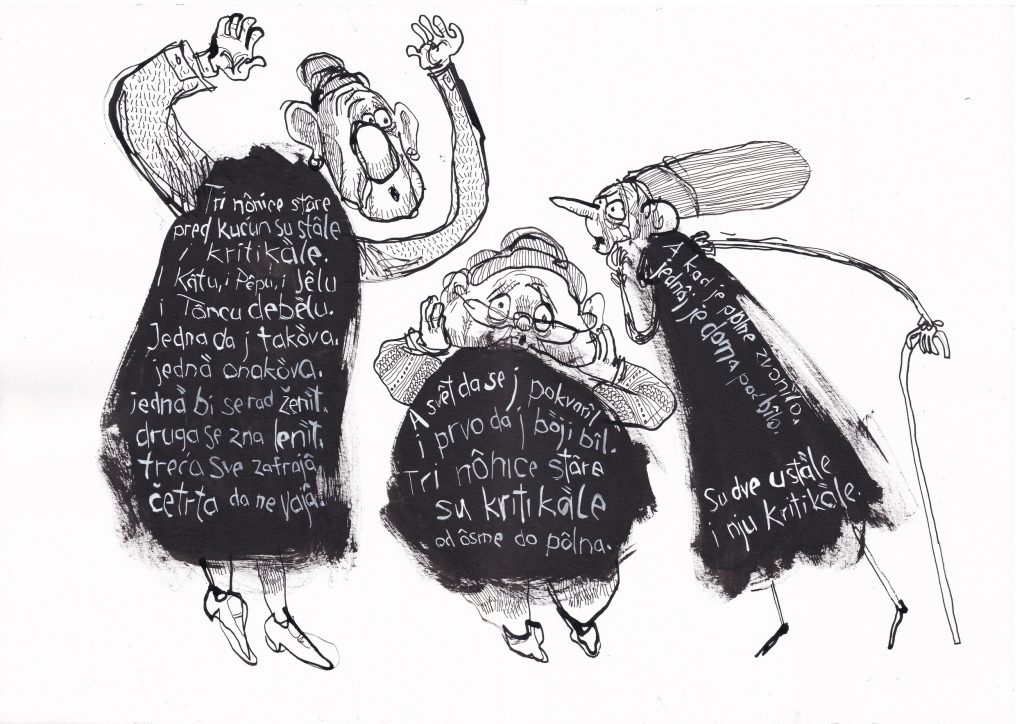 Tri nônice stare
pred kućun su stâle
i kritikȁle.
I Kâtu, i Pêpu, i Jêlu
i Tôncu debèlu.
Jedna da j takȍva,
jednȁ onakȍva,
jednȁ bi se rad ženit,
druga se zna lenit,
treća sve zafrajȃ,
četrta da ne vajȃ.
A svêt da se j pokvaril
i prvo da j bȍji bîl.
Tri nônice stâre
su kritikȁle
od ôsme do pôlna.
A kad je pôlne zvonilo,
jednôj je doma poć bîlo.
Su dve ustȁle
i nju kritikȁle.